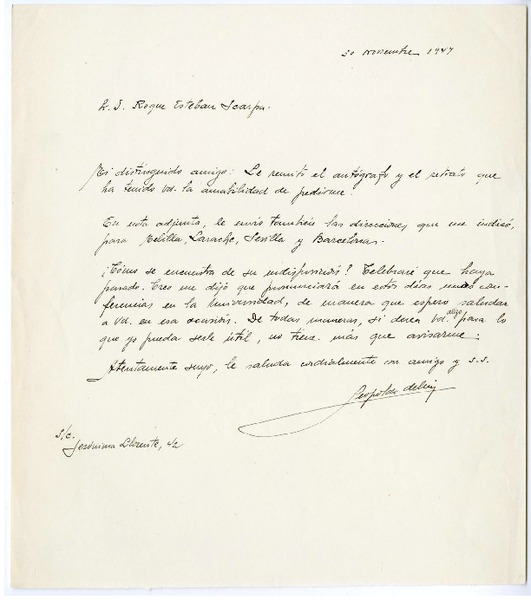 20 noviembre 1947
R. S. Roque Esteban Scarpa.
Mi distinguido amigo: Le remito el autógrafo y el retrato que
ha tenido Vd. la amabilidad de pedirme.
En nota adjunta, le envío también las direcciones que me indicó,
para Melilla, Larache, Sevilla y Barcelona.
¿Cómo se encuentra de su indisposición? Celebraré que haya
pasado. Creo me dijo que pronunciará en estos días unas con-
ferencias en la Universidad, de manera que espero saludar
a Vd. en esa ocasión. De todas maneras, si desea Vd. algo para lo
que yo pueda serle útil, no tiene más que avisarme.
Atentamente suyo, le saluda cordialmente su amigo y s.s.
Leopoldo de Luis
S/c.
Jerónima Llorente,